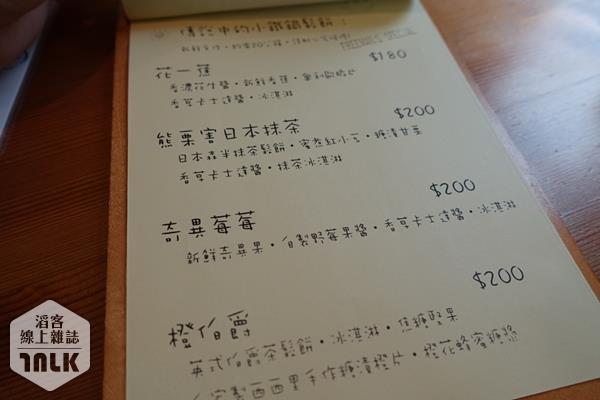 傳說中的小鐵鍋鬆餅：
花一蕉
$180
香濃花生醬·新鮮香蕉·
香草卡士達醬·冰淇淋
熊栗害日本抹茶
$200
日本森半抹茶鬆餅·蜜煮紅小豆·糖漬甘栗
香草卡士達醬·抹茶冰淇淋
奇異莓莓
$200
新鮮奇異果·自製野莓果醬·香草卡士達醬·冰淇淋
橙伯爵
$200
英式伯爵茶鬆餅·冰淇淋·焦糖堅果
自製西西里手作糖漬橙片·橙花蜂蜜糖漿
滔客
線上雜誌
TALK